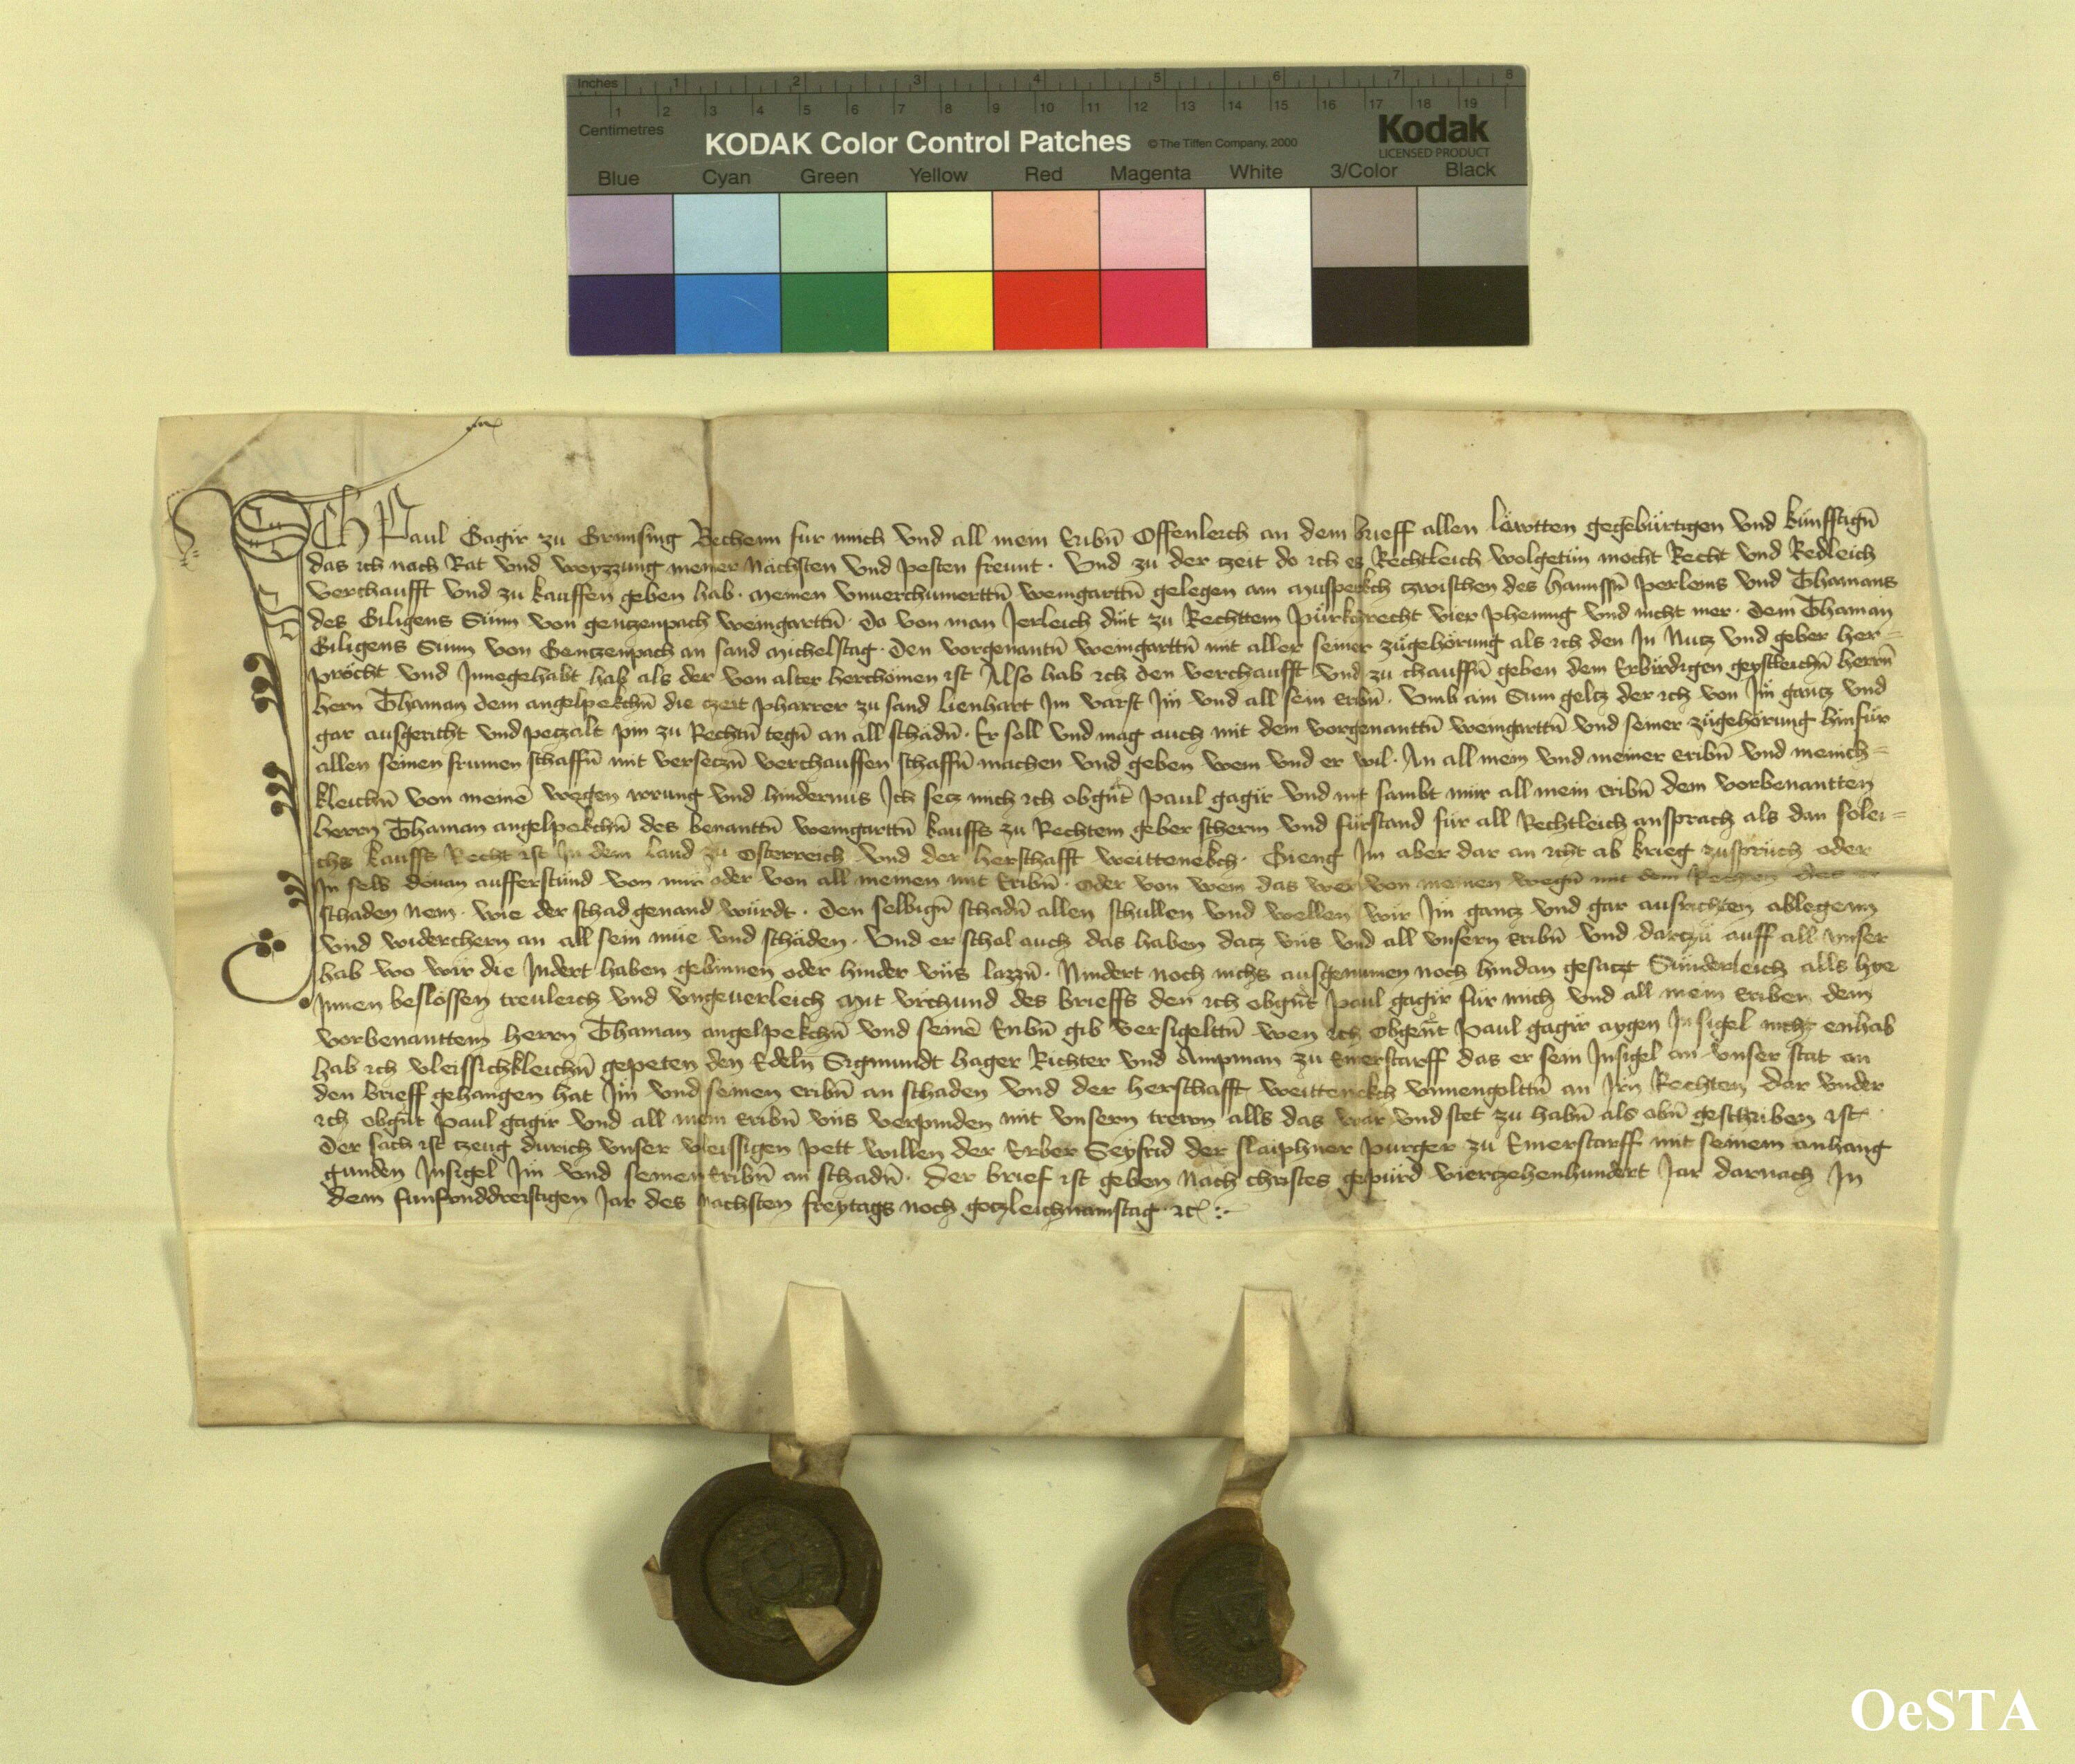 Inches 1 2 3 4 5 6 7 8
1 2 3 4 5 6 7 8 9 10 11 12 13 14 15 16 17 18 19
Centimetres
KODAK Color Control Patches © The Tiffen Company, 2000 Kodak
LICENSED PRODUCT
Blue Cyan Green Yellow Red Magenta White 3/Color Black
Ich Paul Gagir zu Grinsing Vechenn fur mich Vnd all mein Eribn̄ Offenleich an dem brieff allen läwtten gegēbürtigen Vnd künfftign̄
das ich nach Rat Vnd weyzzung meiner Nächsten Vnd pesten freunt · Vnd zu der czeit do ich es Rechtleich wolgetün mocht Recht Vnd Redleich
verchaufft Vnd zu kauffen geben hab · meinen Vnuerchumerttn̄ weingarttn̄ gelegen am Musperkch czwischen des hannssn̄ perleins Vnd Thamans
des Giligens Sünn von gentzenpach weingarttn̄ · Do von man Jerleich dint zu Rechttem purkchrecht vier phenning Vnd nicht mer · dem Thaman
Giligens Sünn von Gentzenpach an sand michelstag · Den vorgenantn̄ weingarttn̄ mit aller seiner zugehörung als ich den In Nutz Vnd geber her=
pröcht Vnd Innegehabt hab als der von alter herchömen ist Also hab ich den verchaufft Vnd zu chauffn̄ geben dem Erbirdigen geystleichn̄ herrn̄
hern Thaman dem angelpekchn̄ die czeit pharrer zu sand lienhart Im varst Im Vnd all sein eribn̄ · Vmb ain Sum geltz der ich von Im gantz Vnd
gar ausgericht Vnd peczalt pin zu Rechtn̄ tegn̄ an all schadn̄ · Er soll Vnd mag auch mit dem vorgenanttn̄ weingarttn̄ Vnd seiner zugehörung hinfür
allen seinen frumen schaffn̄ mit verseczn̄ verchauffen schaffn̄ machen Vnd geben wem Vnd er wil · An all mein Vnd meiner eribn̄ Vnd menich=
kleichn̄ von meinē wegen irrung Vnd hindernus Ich secz mich ich obgn̄t paul gagir Vnd mit sambt mir all mein eribn̄ dem vorbenantten
herrn Thaman angelpekchn̄ des benanttn̄ weingarttn̄ kauffs zu Rechtem geber scherm Vnd fürstand für all Rechtleich ansprach als dan solei=
chs kauffs Recht ist In dem land zu Osterreich Vnd der herschafft weittenekch · Gieng Im aber dar an icht ab krieg zuspruch oder
In selb douan aufferstünd von mir oder von all meinen mit Eribn̄ · oder von wem das wer von meinen wegn̄ mit dem Rechten des er
schaden nem · wie der schad genand würdt · Den selbign̄ schadn̄ allen schullen Vnd wellen wir Im gantz Vnd gar ausrichten ablegenn
Vnd widerchern an all sein müe Vnd schäden · Vnd er schol auch das haben datz vns Vnd all vnsern eribn̄ Vnd darczu auff all vnser
hab wo wir die Indert haben gebinnen oder hinder vns lazzn̄ · Nindert noch nichs ausgenumen noch hindan gesaczt Sunderleich alls hye
Innen beslossen treuleich Vnd vngeuerleich Mit vrchund des brieffs den ich obgn̄t paul gagir für mich Vnd all mein eriben dem
vorbenanttem herrn Thaman angelpekchn̄ Vnd seinē Eribn̄ gib versigelttn̄ wen ich obgen̄t Paul gagir aygen Insigel nicht enhab
hab ich vleissichkleichn̄ gepeten den Edeln̄ Sigmundt hager Richter Vnd Ampman zu Emerstarff das er sein Insigel an vnser stat an
den brieff gehangen hat Im Vnd seinen eribn̄ an schaden Vnd der herschafft weittenekch vnnengolttn̄ an Irn Rechten dar vnder
ich obgn̄t paul gagir Vnd all mein Eribn̄ vns verpinden mit vnsern trewn alls das war Vnd stet zu habn̄ als obn̄ geschriben ist
Der sach ist czeug durich vnser vleissigen pett willen der Erber Seyfrid der slaiphner purger zu Emerstarff mit seinem anhang
gunden Insigel Im Vnd seinen eribn̄ an schadn̄ · Der brief ist geben Nach christes gepurd vierczehenhundert Jar darnach In
dem funfvnddreistigen Jar des nachsten freytags noch goczleichnamstag ·
OeSTA